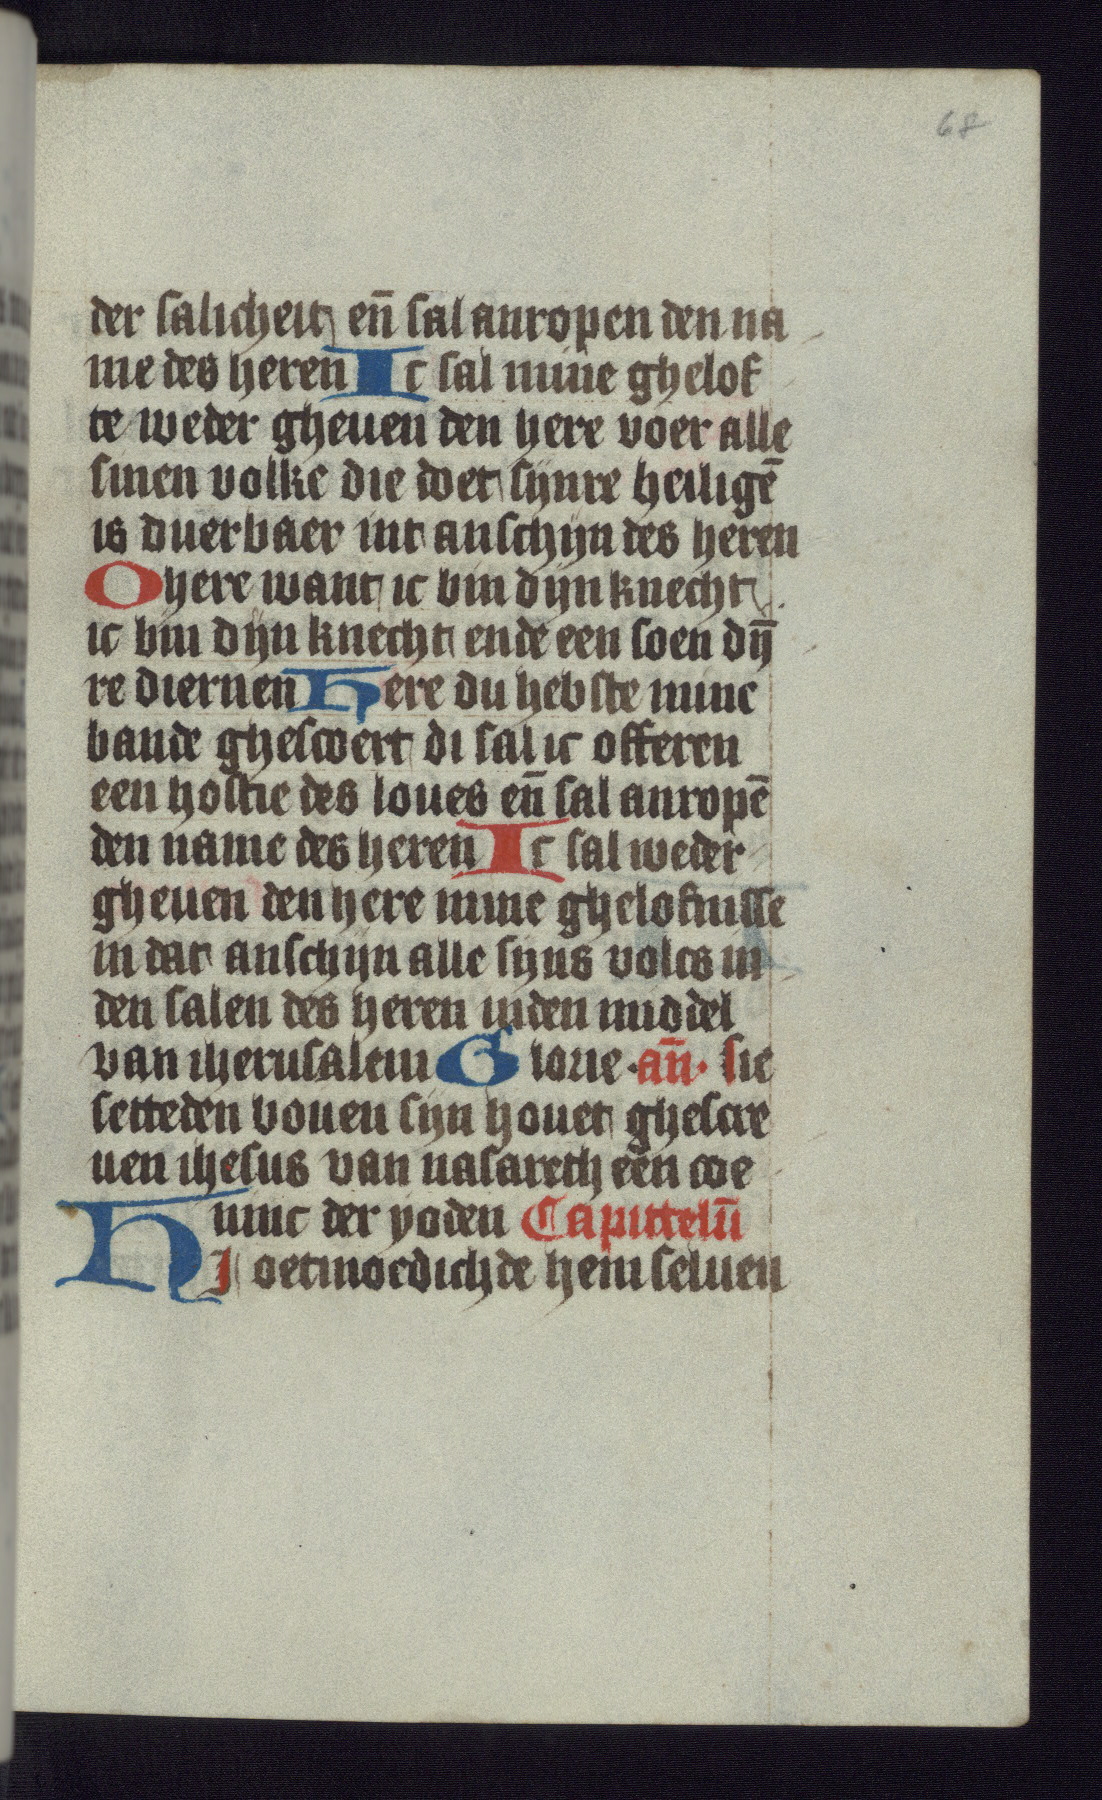 68
der salicheit en̄ sal anropen den na
me des heren Ic sal mine ghelof
te weder gheuen den here voer alle
sinen volke die doet sijnre heiligē
is duerbaer int anschijn des heren
O here want ic bin dijn knecht
ic bin dijn knecht ende een soen dij̄
re diernen Here du hebste mine
bande ghescoert di sal ic offeren
een hostie des loues en̄ sal anropē
den name des heren Ic sal weder
gheuen den here mine ghelofnisse
in dat anschijn alle sijns volcs in
den salen des heren inden middel
van iherusalem Glorie · an̄ · sie
setteden bouen sijn houet ghescre
uen ihesus van nasareth een coe
ninc der yoden Capittelū
HI oetmoedichde hem seluen